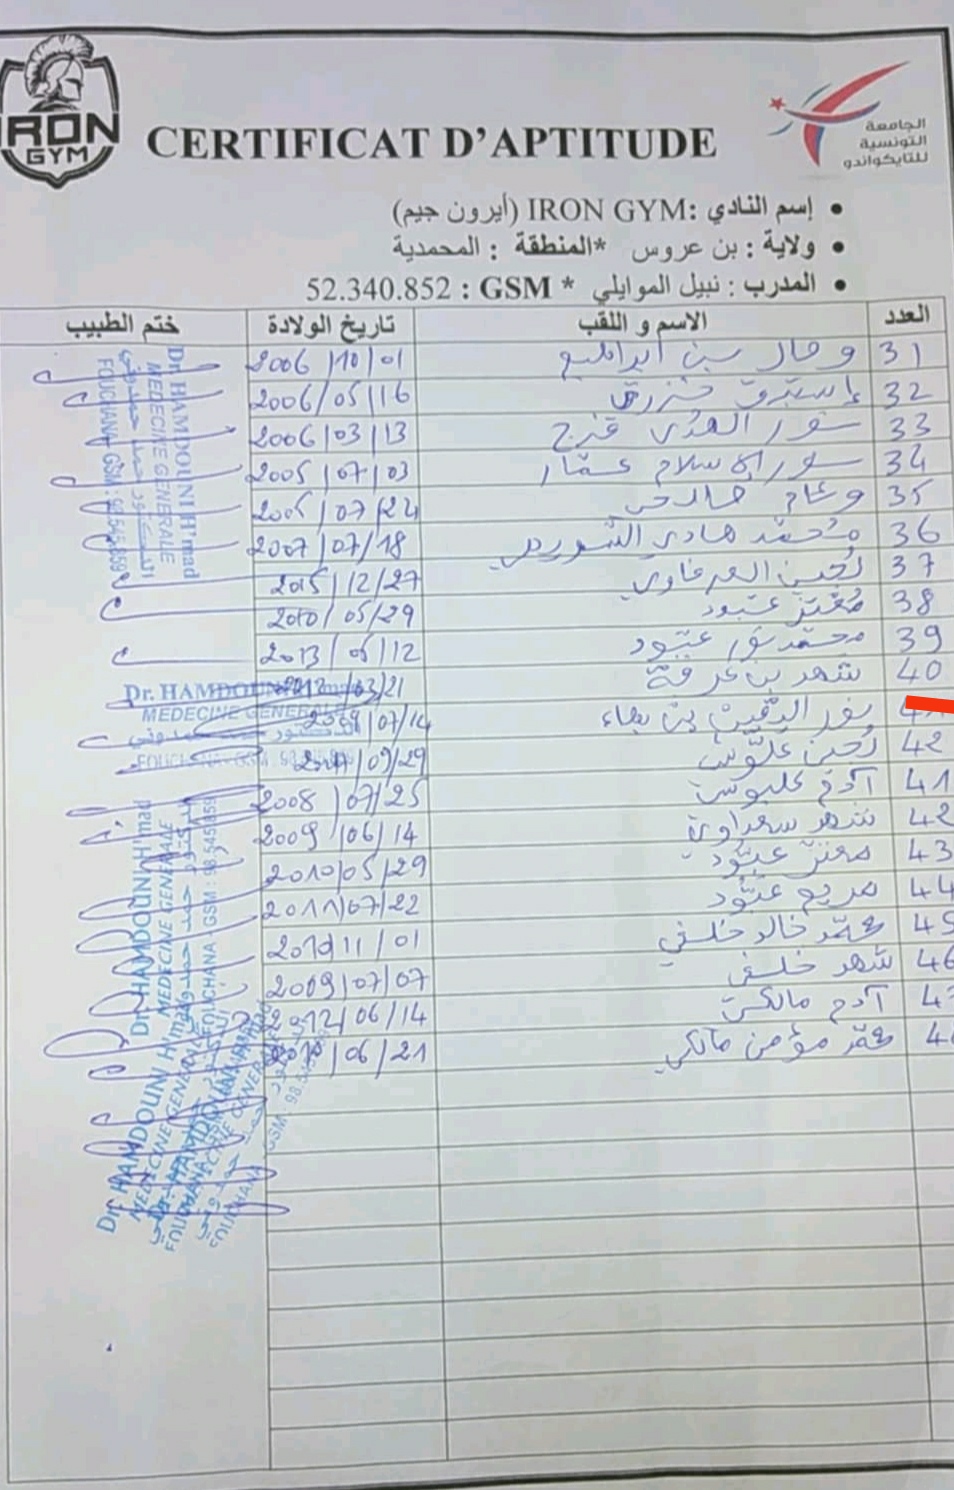 IRON
GYM
CERTIFICAT D'APTITUDE
الجامعة
التونسية
للتايكواندو
إسم النادي :IRON GYM (أيرون جيم)
ولاية : بن عروس *المنطقة : المحمدية
المدرب : نبيل الموايلي * GSM : 52.340.852
العدد الاسم و اللقب تاريخ الولادة ختم الطبيب
31 بن ابراهيم 2006/10/01
32 إستبرق 2006/05/16
33 نور الهدى فرج 2006/03/13
34 نور الإسلام عمار 2005/07/03
35 وئام 2005/07/24
36 محمد هادي 2007/07/18
37 لجين العرفاوي 2015/12/27
38 معتز عبود 2010/05/29
39 محمد نور عبود 2013/05/12
40 شهد بن عرفة /03/21
نور اليقين بن بهاء 2009/07/14
42 لجين علوش /09/29
41 آدم 2008/07/25
42 شهد سعداوي 2009/06/14
43 معتز عبود 2010/05/29
44 مريم عبود 2011/07/22
45 محمد خالد خلفي /11/01
46 شهد خلفي 2009/07/07
آدم مالكي 2012/06/14
محمد مؤمن مالكي /06/21
Dr. HAMDOUNI H'mad
MEDECINE GENERALE
الدكتور حمد حمدوني
FOUCHANA - GSM : 98.545.859
Dr. HAMDOUNI H'mad
MEDECINE GENERALE
FOUCHANA - GSM : 98.545.859
Dr. HAMDOUNI H'mad
MEDECINE GENERALE
الدكتور حمد حمدوني
FOUCHANA - GSM : 98.545.859
Dr. HAMDOUNI H'mad
MEDECINE GENERALE
FOUCHANA